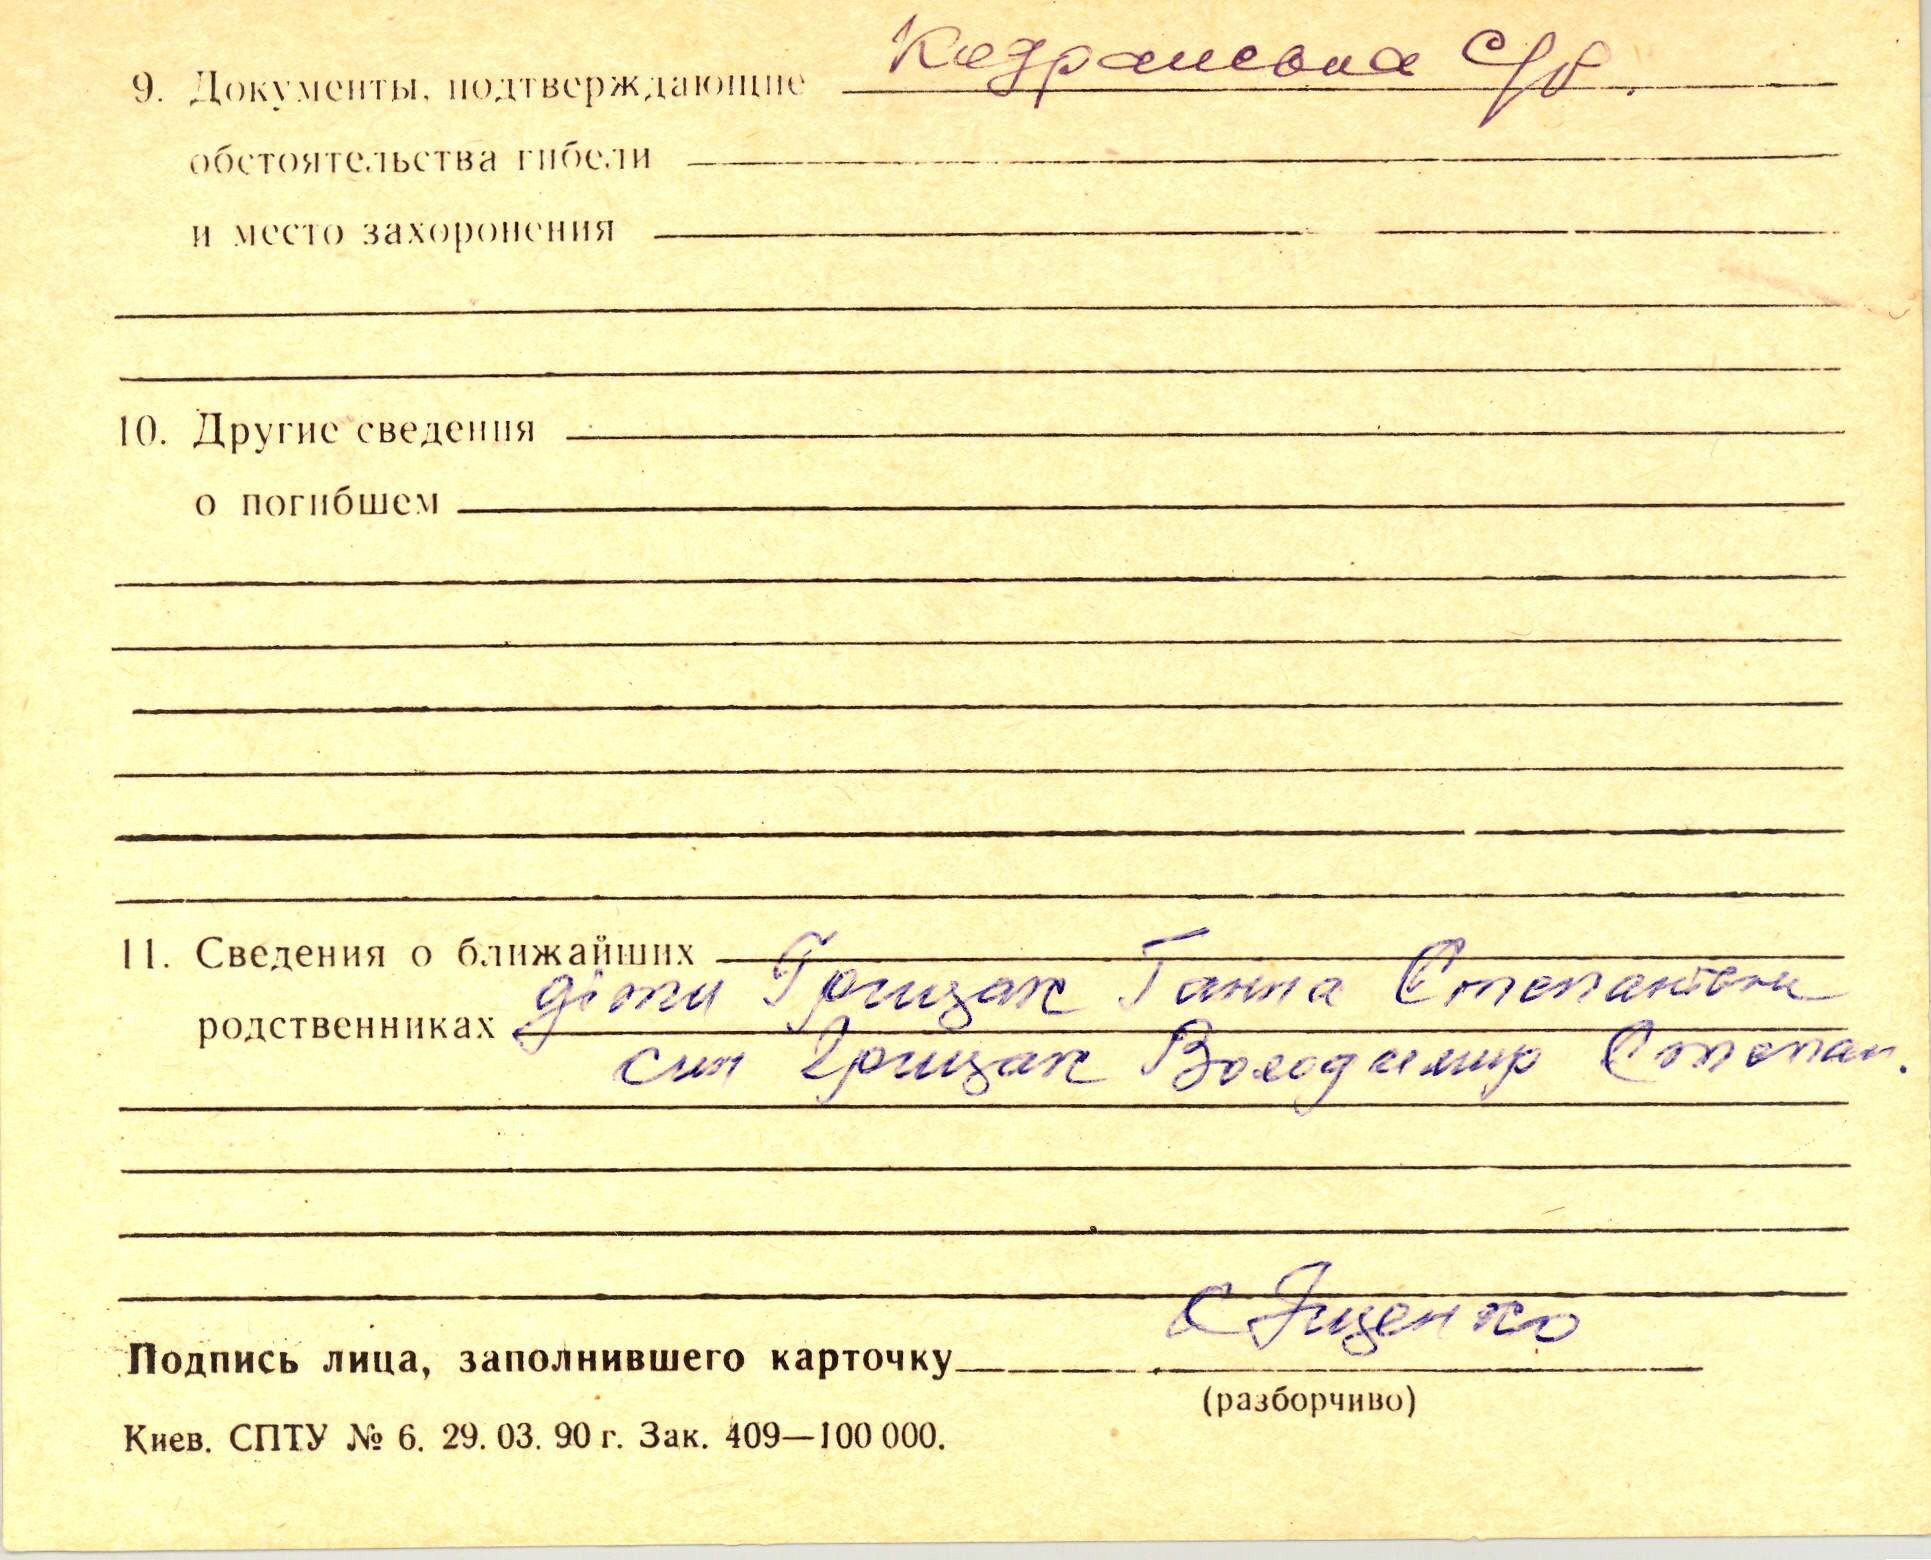 9. Документы, подтверждающие С/Р.
обстоятельства гибели
и место захоронения
10. Другие сведения
о погибшем
11. Сведения о ближайших
родственниках діти Грицак Ганна Степанівна
син Грицак Володимир Степан.
Подпись лица, заполнившего карточку
(разборчиво)
Киев. СПТУ № 6. 29. 03. 90 г. Зак. 409—100 000.